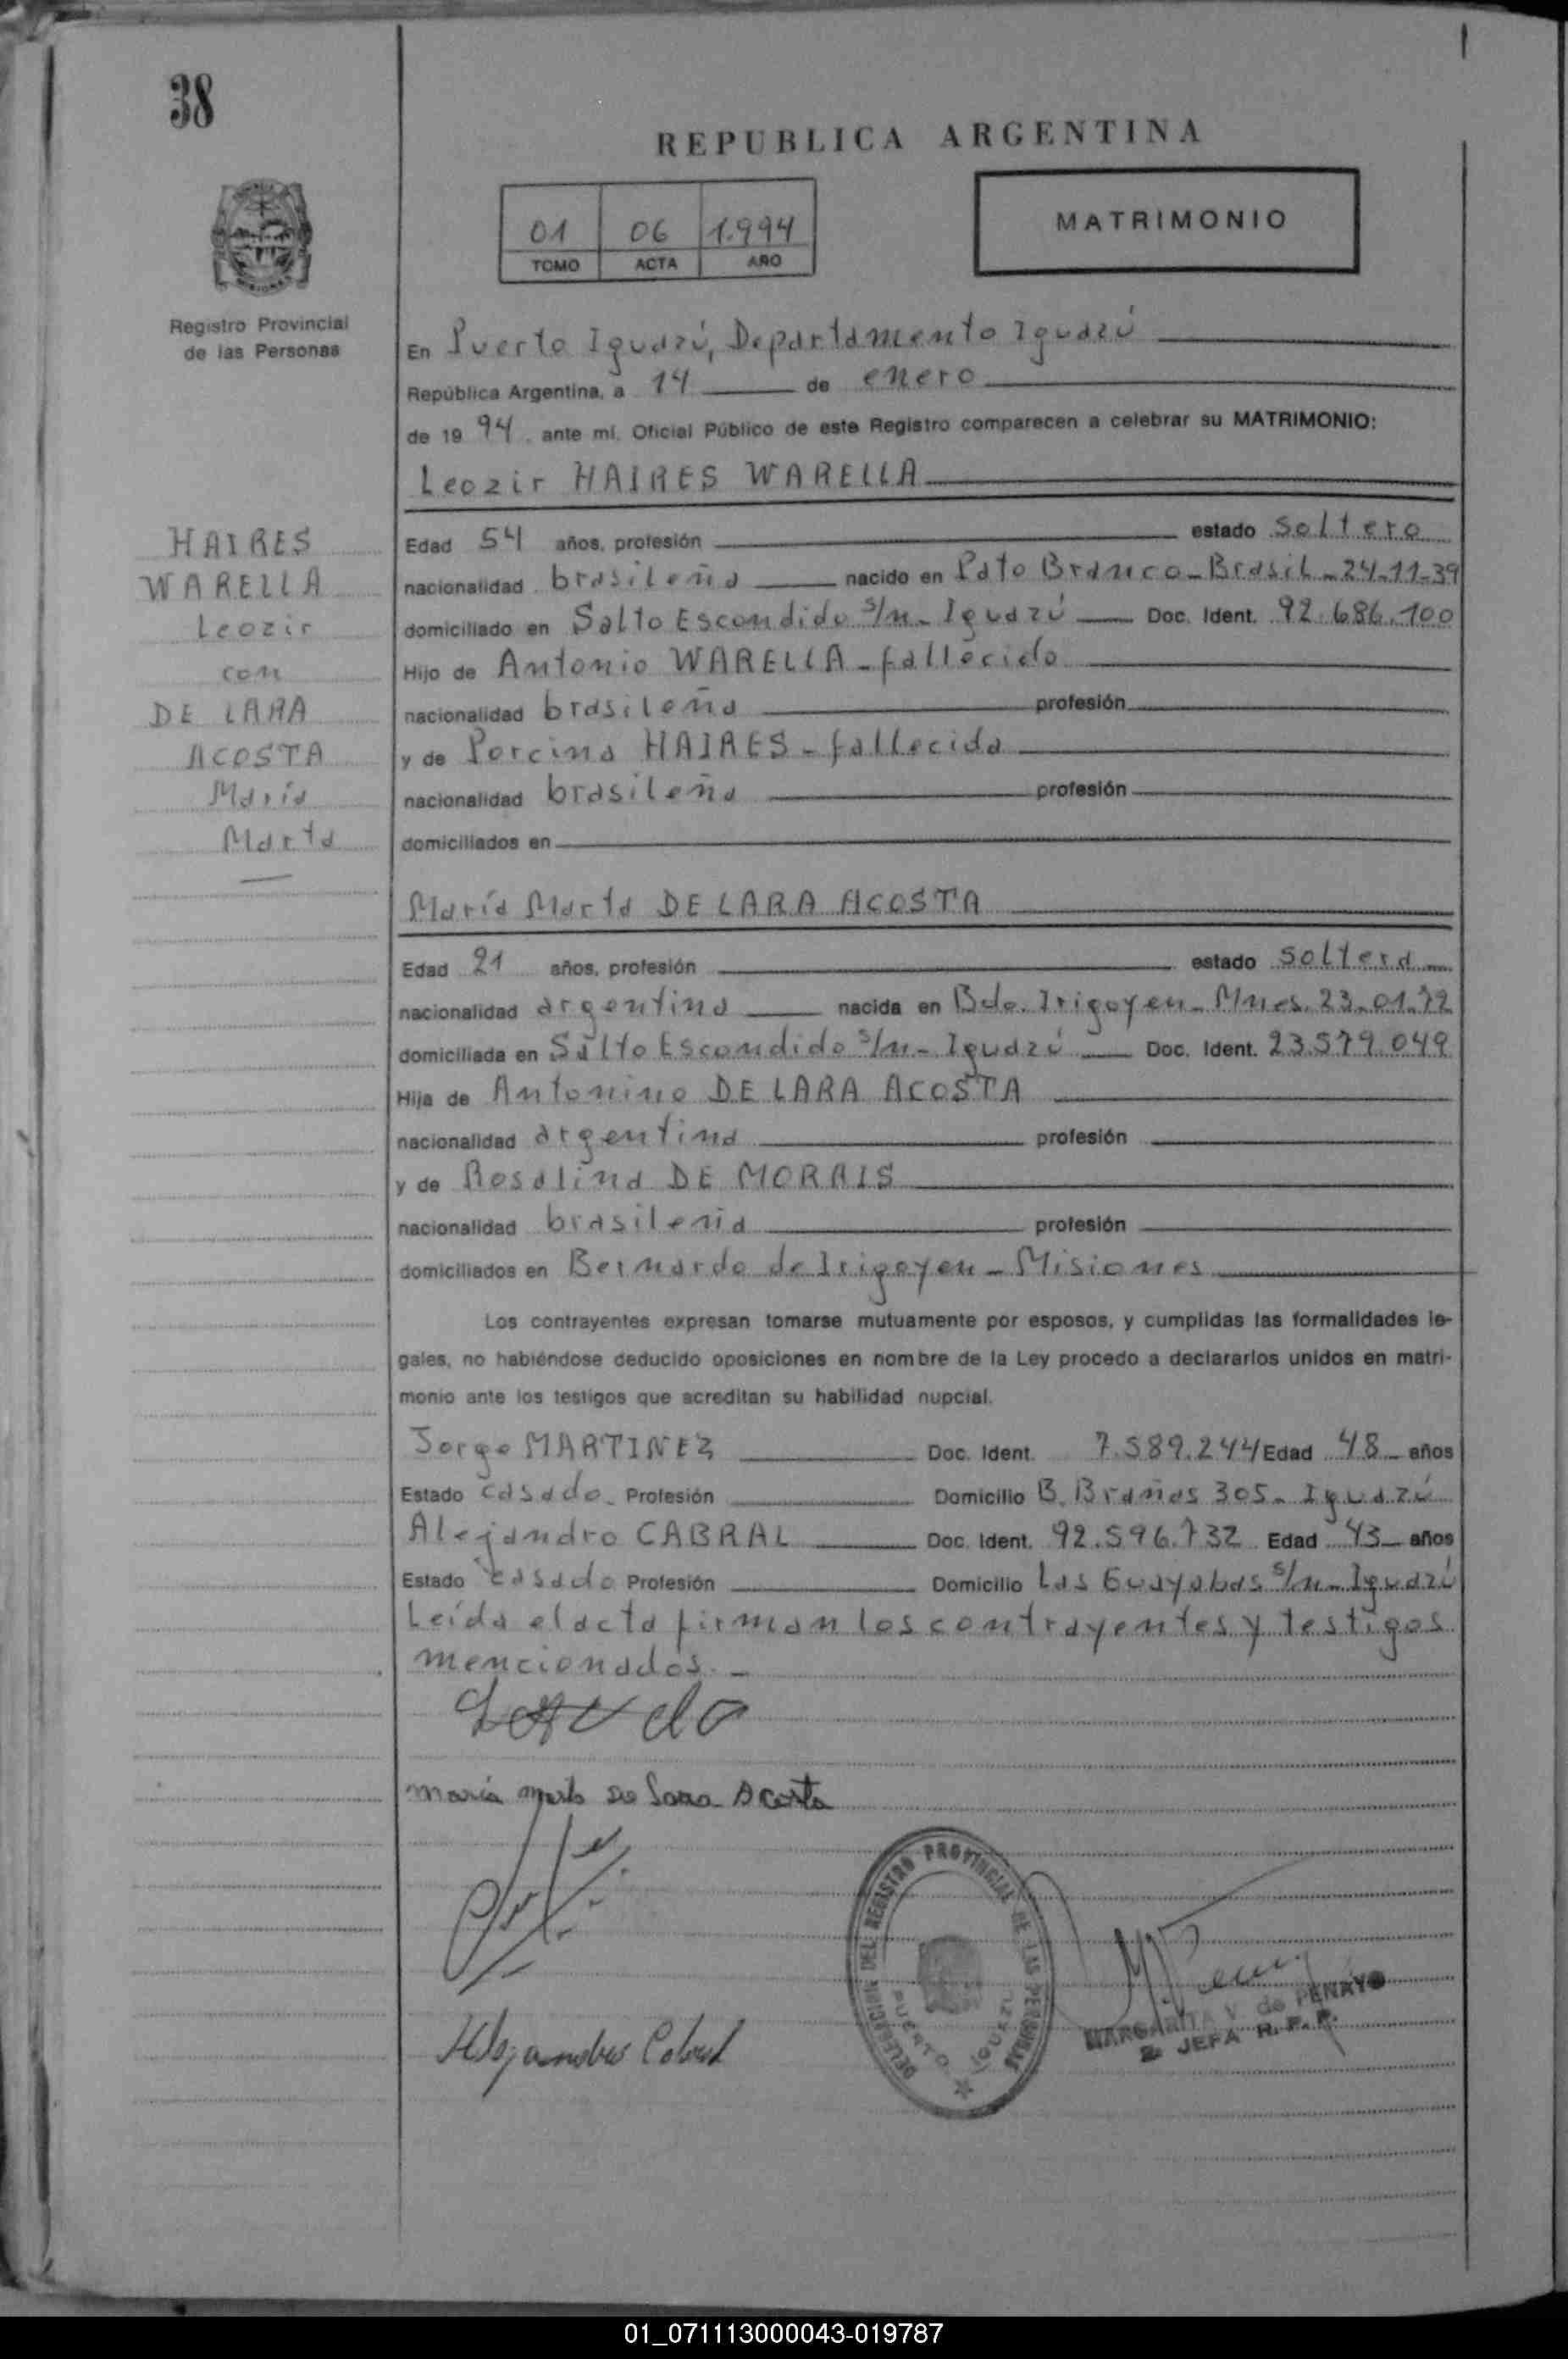 38
REPUBLICA ARGENTINA
01 06 1.994
TOMO ACTA AÑO
MATRIMONIO
Registro Provincial
de las Personas
En Puerto Iguazú, Departamento Iguazú
República Argentina, a 14 de enero
de 19 94, ante mí, Oficial Público de este Registro comparecen a celebrar su MATRIMONIO:
Leozir HAIRES WARELLA
HAIRES
WARELLA
Leozir
con
DE LARA
ACOSTA
María
Marta
Edad 54 años, profesión estado soltero
nacionalidad brasileña nacido en Pato Branco - Brasil - 24-11-39
domiciliado en Salto Escondido s/n - Iguazú Doc. Ident. 92.686.100
Hijo de Antonio WARELLA - fallecido
nacionalidad brasileña profesión
y de Porcina HAIRES - fallecida
nacionalidad brasileña profesión
domiciliados en
María Marta DE LARA ACOSTA
Edad 21 años, profesión estado soltera
nacionalidad argentina nacida en Bdo. Irigoyen - Mnes. 23-01-72
domiciliada en Salto Escondido s/n - Iguazú Doc. Ident. 23.579.049
Hija de Antonino DE LARA ACOSTA
nacionalidad argentina profesión
y de Rosalina DE MORAIS
nacionalidad brasileña profesión
domiciliados en Bernardo de Irigoyen - Misiones
Los contrayentes expresan tomarse mutuamente por esposos, y cumplidas las formalidades le-
gales, no habiéndose deducido oposiciones en nombre de la Ley procedo a declararlos unidos en matri-
monio ante los testigos que acreditan su habilidad nupcial.
Jorge MARTINEZ Doc. Ident. 7.589.244 Edad 48 años
Estado casado Profesión Domicilio B. Brañas 305 - Iguazú
Alejandro CABRAL Doc. Ident. 92.596.732 Edad 43 años
Estado casado Profesión Domicilio Las Guayabas s/n - Iguazú
Leída el acta firman los contrayentes y testigos
mencionados. -
María Marta De Lara Acosta
DELEGACION DEL REGISTRO PROVINCIAL DE LAS PERSONAS
PUERTO IGUAZU
MARGARITA V. de PENAYO
JEFA R. P. P.
Alejandro Cabral
01_071113000043-019787